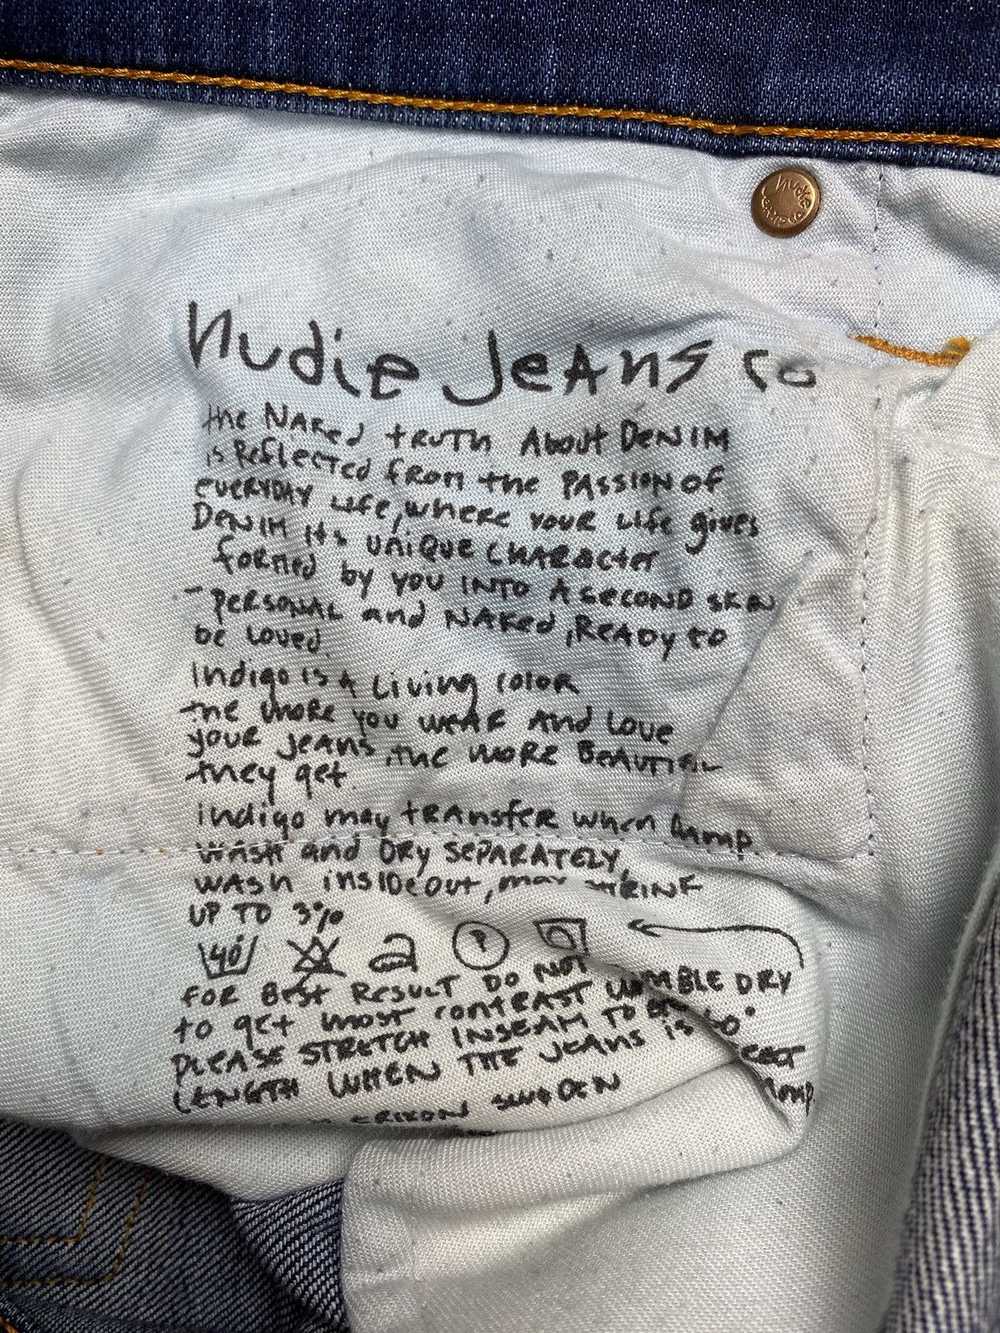 nudie
Jeans co
nudie Jeans co
the NAKed tRuTh About DENIM
is ReflecteD from the PAssion of
eveRYDAY Life, wheRe youR Life gives
DeniM its UniQue CHARacteR
foRMeD by you INTO A seCOND skiN
- PeRSONAL and NAKed, ReADy to
be Loved.
Indigo is A Living coloR
the moRe you weAR And Love
youR JeAns, the moRe BeAutifuL
they get.
indigo may tRAnsfeR when Damp.
WASH and DRy SePARATELy,
WASh insiDeout, may SHRINK
UP TO 3%
40 P
FOR Best ResuLT DO NOT
to get most contRAST tumBLE DRY
PLEASE STRETCH INSEAM TO
LENGTH WHEN THE JEANS is 
ERIKON SWEDEN